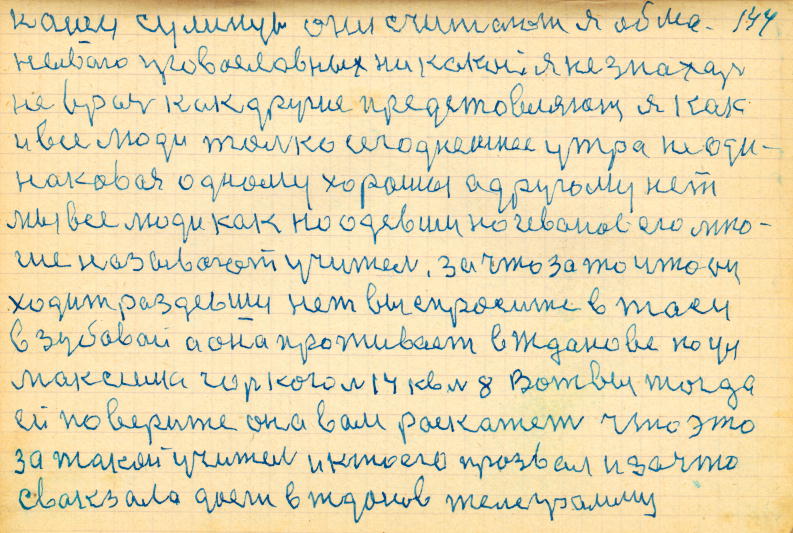 каеи сулинцы они считают я обма- 144
неваю провославных никакой я не знахар
не врач как другие предстовляющ я как
и все люди толко сегоднешнее утра не оди-
наковая одному хорошы а другому нет
мы все люди как
ие называют учител, за что за то што он
ходит раздевши нет вы спросите в таси
в зубовай а она проживает в жданове по ул
максима горкого л 14 кв м 8 Вот вы тогда
ей поверите она вам раскажет что это
за такой учител и кто его прозвал и за что
свакзала даеш в жданов телеграмму